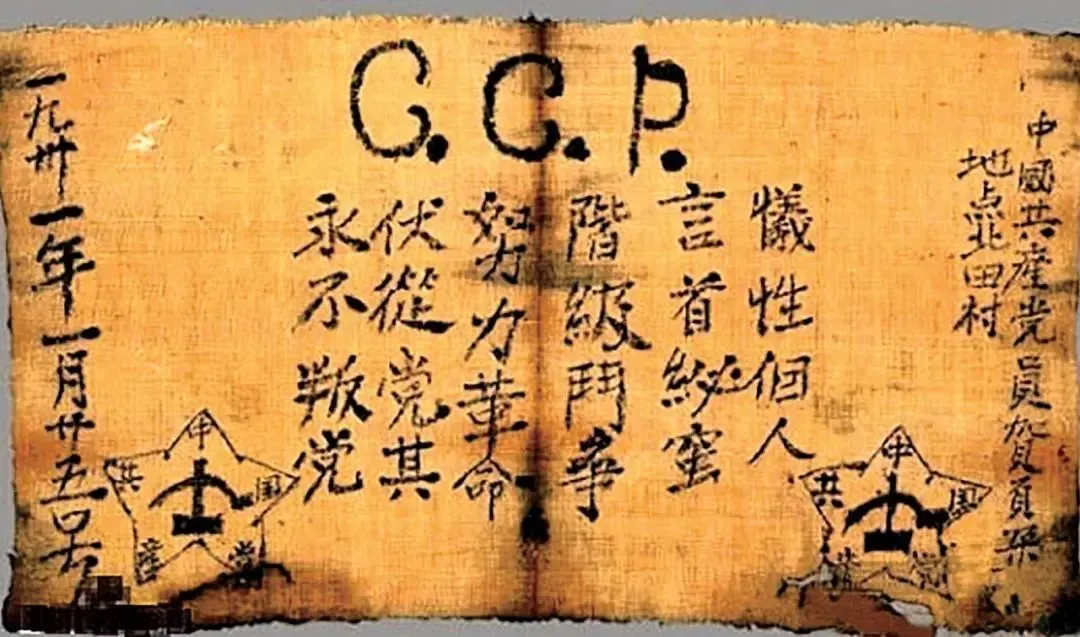 C.C.P.
中國共産党員
地点北田村
犠性個人
言首
階級鬥争
努力革命
伏從党其
永不叛党
一九卅一年一月廿五
中国共産党
中国共産党